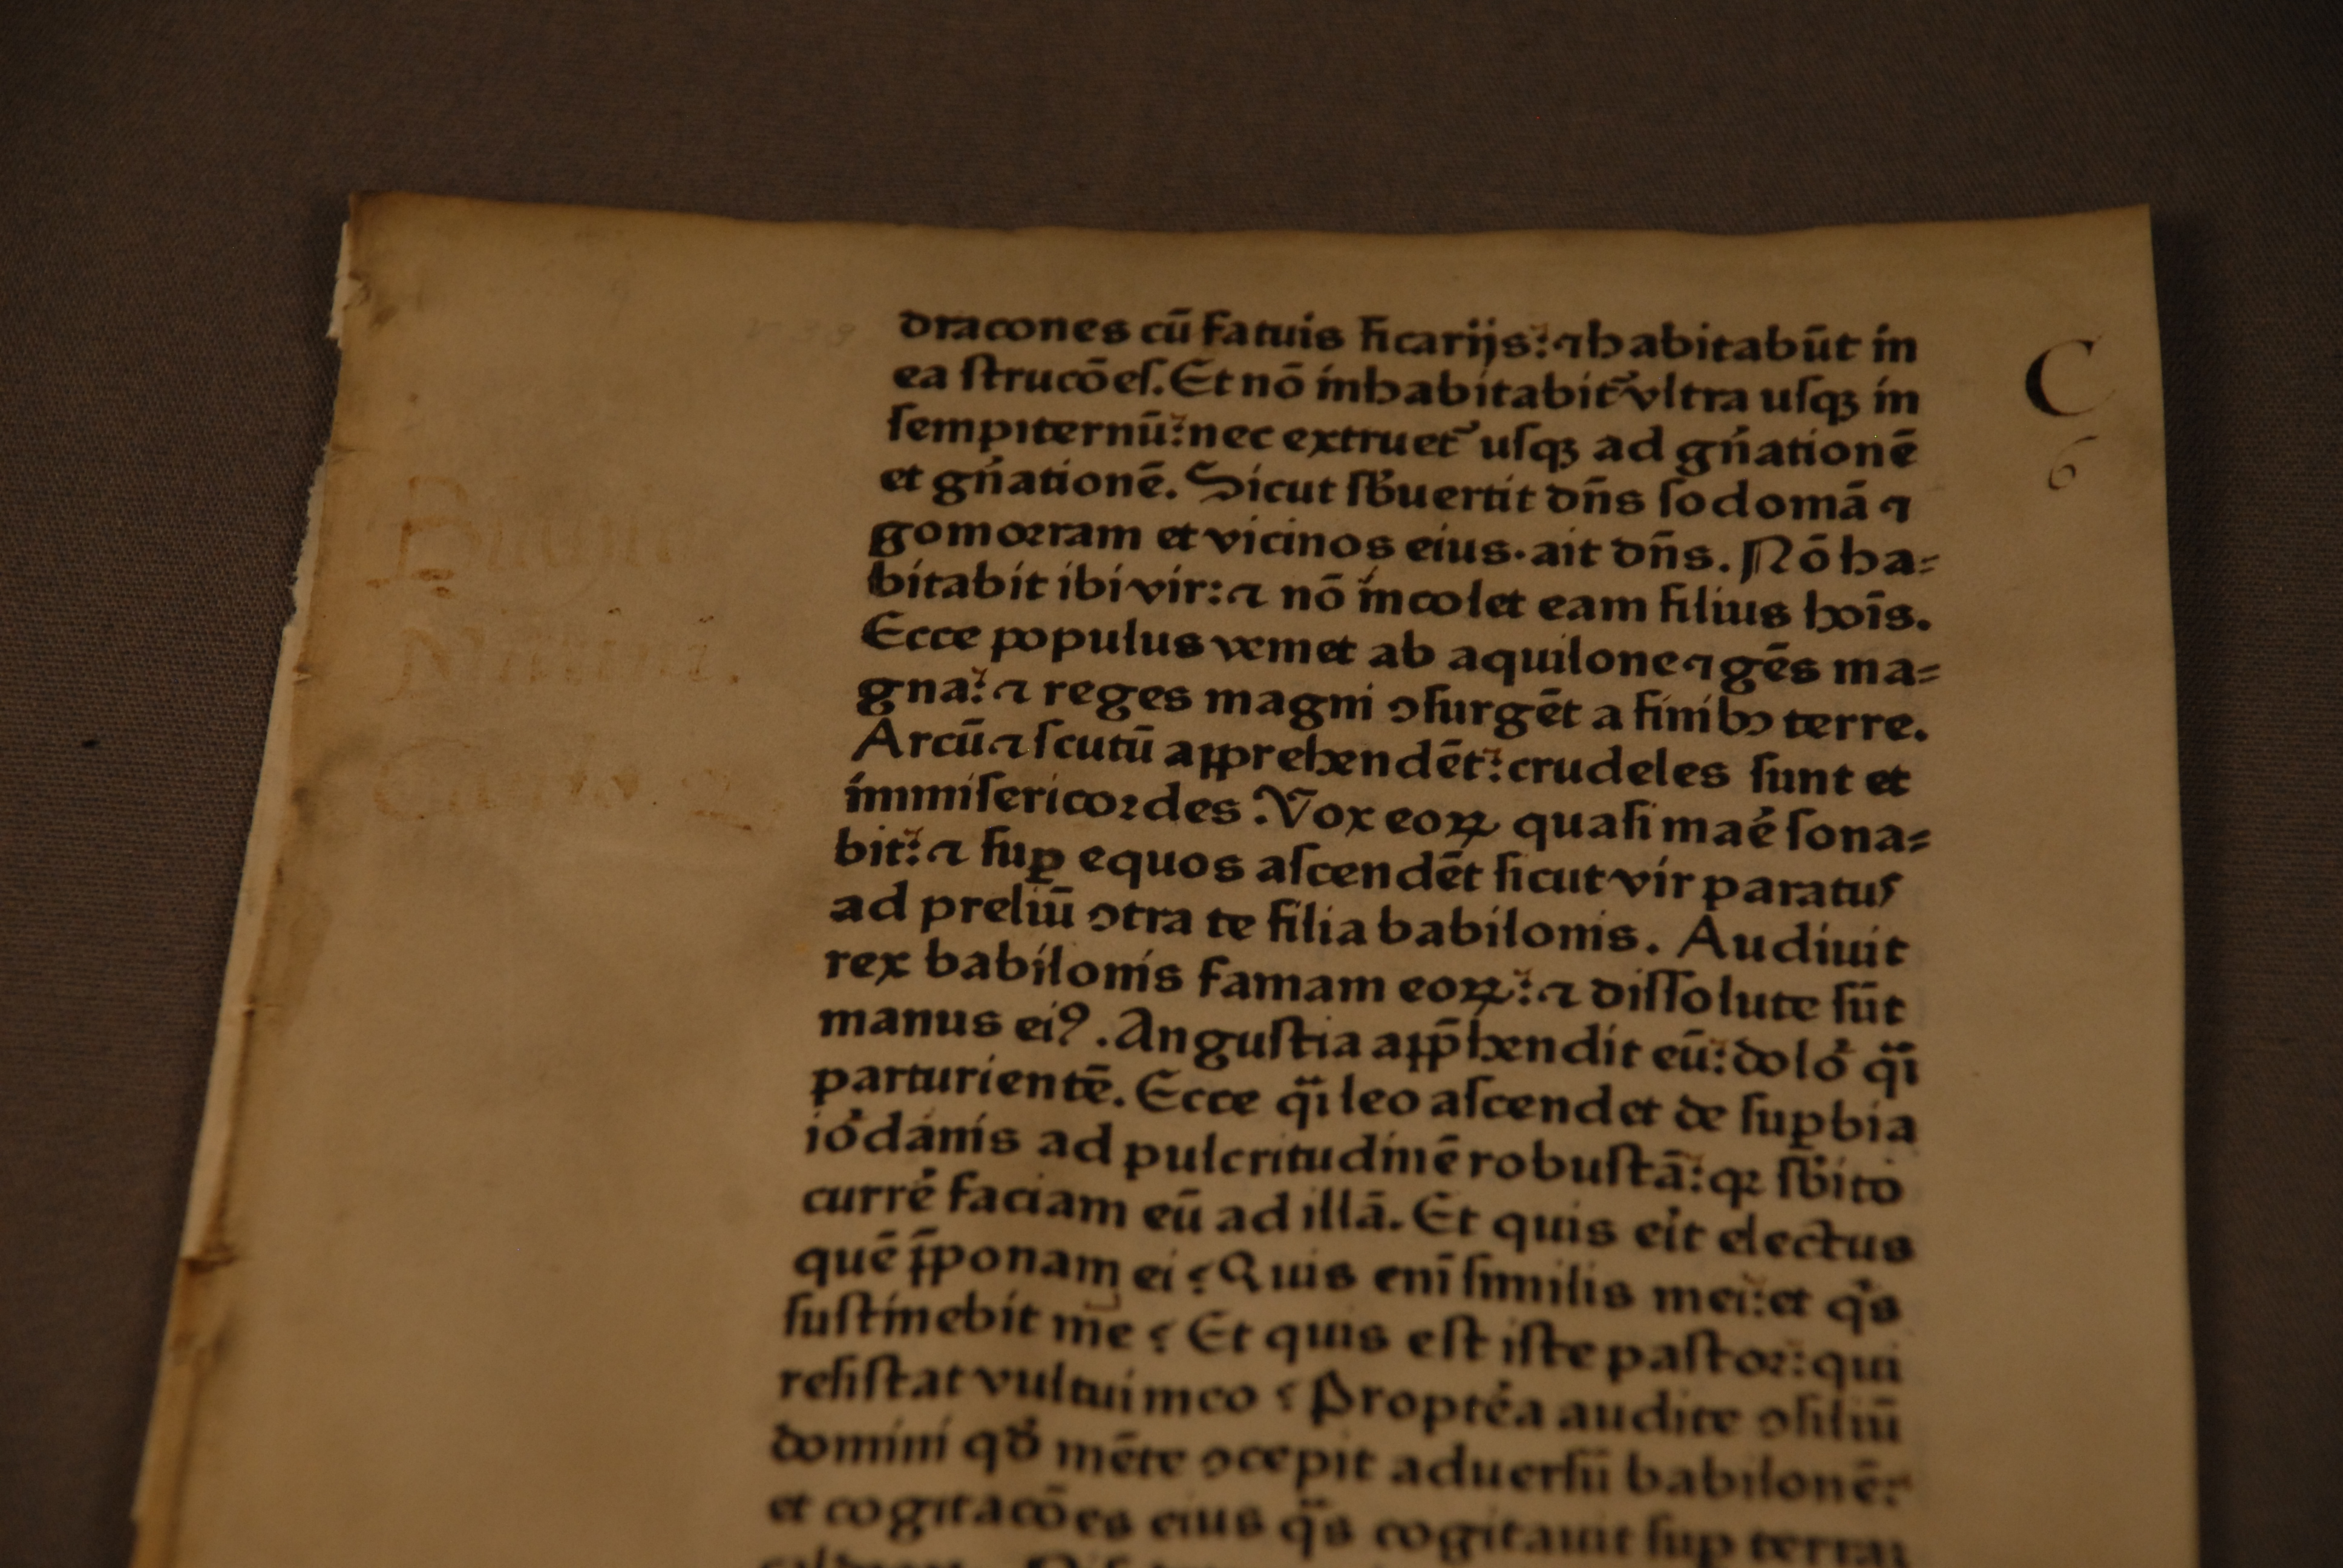 dracones cū fatuis ficarijs: ⁊ habitabūt in
ea strucōes. Et nō inhabitabit᷑ vltra usqꝫ in
sempiternū: nec extruet᷑ usqꝫ ad gn̄ationē
et gn̄ationē. Sicut sb̄uertit dn̄s sodomā ⁊
gomorram et vicinos eius. ait dn̄s. Nō ha=
bitabit ibi vir: ⁊ nō incolet eam filius hoīs.
Ecce populus veniet ab aquilone ⁊ gēs ma=
gna: ⁊ reges magni ꝯsurgēt a finibꝫ terre.
Arcū ⁊ scutū apprehendēt: crudeles sunt et
immisericordes. Vox eoꝝ quasi maē sona=
bit: ⁊ suꝑ equos ascendēt sicut vir paratus
ad preliū ꝯtra te filia babilonis. Audiuit
rex babilonis famam eoꝝ: ⁊ dissolute sūt
manus eiꝰ. Angustia app̄hendit eū: dolo᷑ qͣi
parturientē. Ecce qͣi leo ascendet de suꝑbia
io᷑danis ad pulcritudinē robustā: qꝛ sb̄ito
curre᷑ faciam eū ad illā. Et quis eit᷑ electus
quē p̄ponam ei? Quis enī similis mei: et qͥs
sustinebit me? Et quis est iste pastor: qui
resistat vultui meo? Propte᷑a audite ꝯsiliū
domini qd̄ mēte ꝯcepit aduersū babilonē:
et cogitacōes eius qͣs cogitauit suꝑ terram
C
6